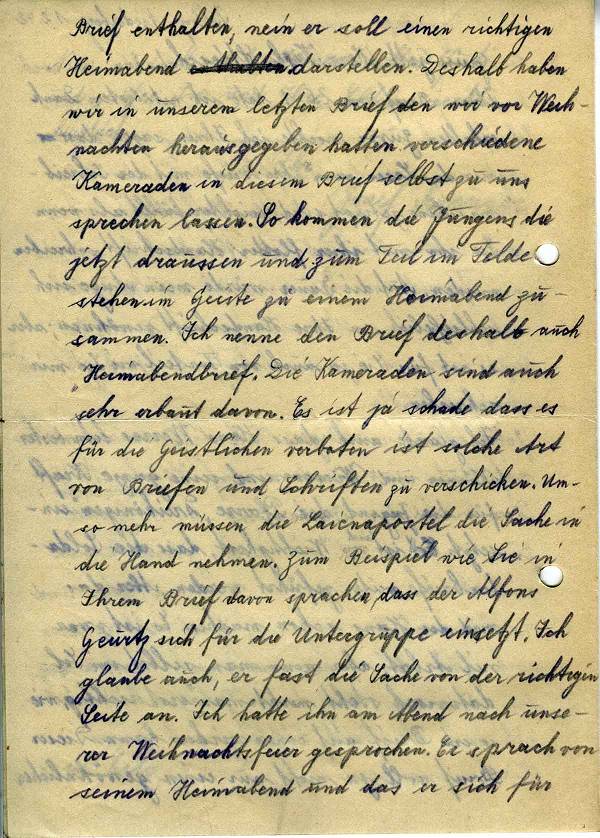 Brief enthalten, nein er soll einen richtigen
Heimabend enthalten darstellen. Deshalb haben
wir in unserem letzten Brief den wir vor Weih-
nachten herausgegeben hatten verschiedene
Kameraden in diesem Brief selbst zu uns
sprechen lassen. So kommen die Jungens die
jetzt draussen und zum Teil im Felde
stehen im Geiste zu einem Heimabend zu-
sammen. Ich nenne den Brief deshalb auch
Heimabendbrief. Die Kameraden sind auch
sehr erbaut davon. Es ist ja schade dass es
für die Geistlichen verboten ist solche Art
von Briefen und Schriften zu verschicken. Um-
so mehr müssen die Laienapostel die Sache in
die Hand nehmen. Zum Beispiel wie Sie in
Ihrem Brief davon sprachen, dass der Alfons
Geurtz sich für die Untergruppe einsetzt. Ich
glaube auch, er fast die Sache von der richtigen
Seite an. Ich hatte ihn am Abend nach unse-
rer Weihnachtsfeier gesprochen. Er sprach von
seinem Heimabend und das er sich für